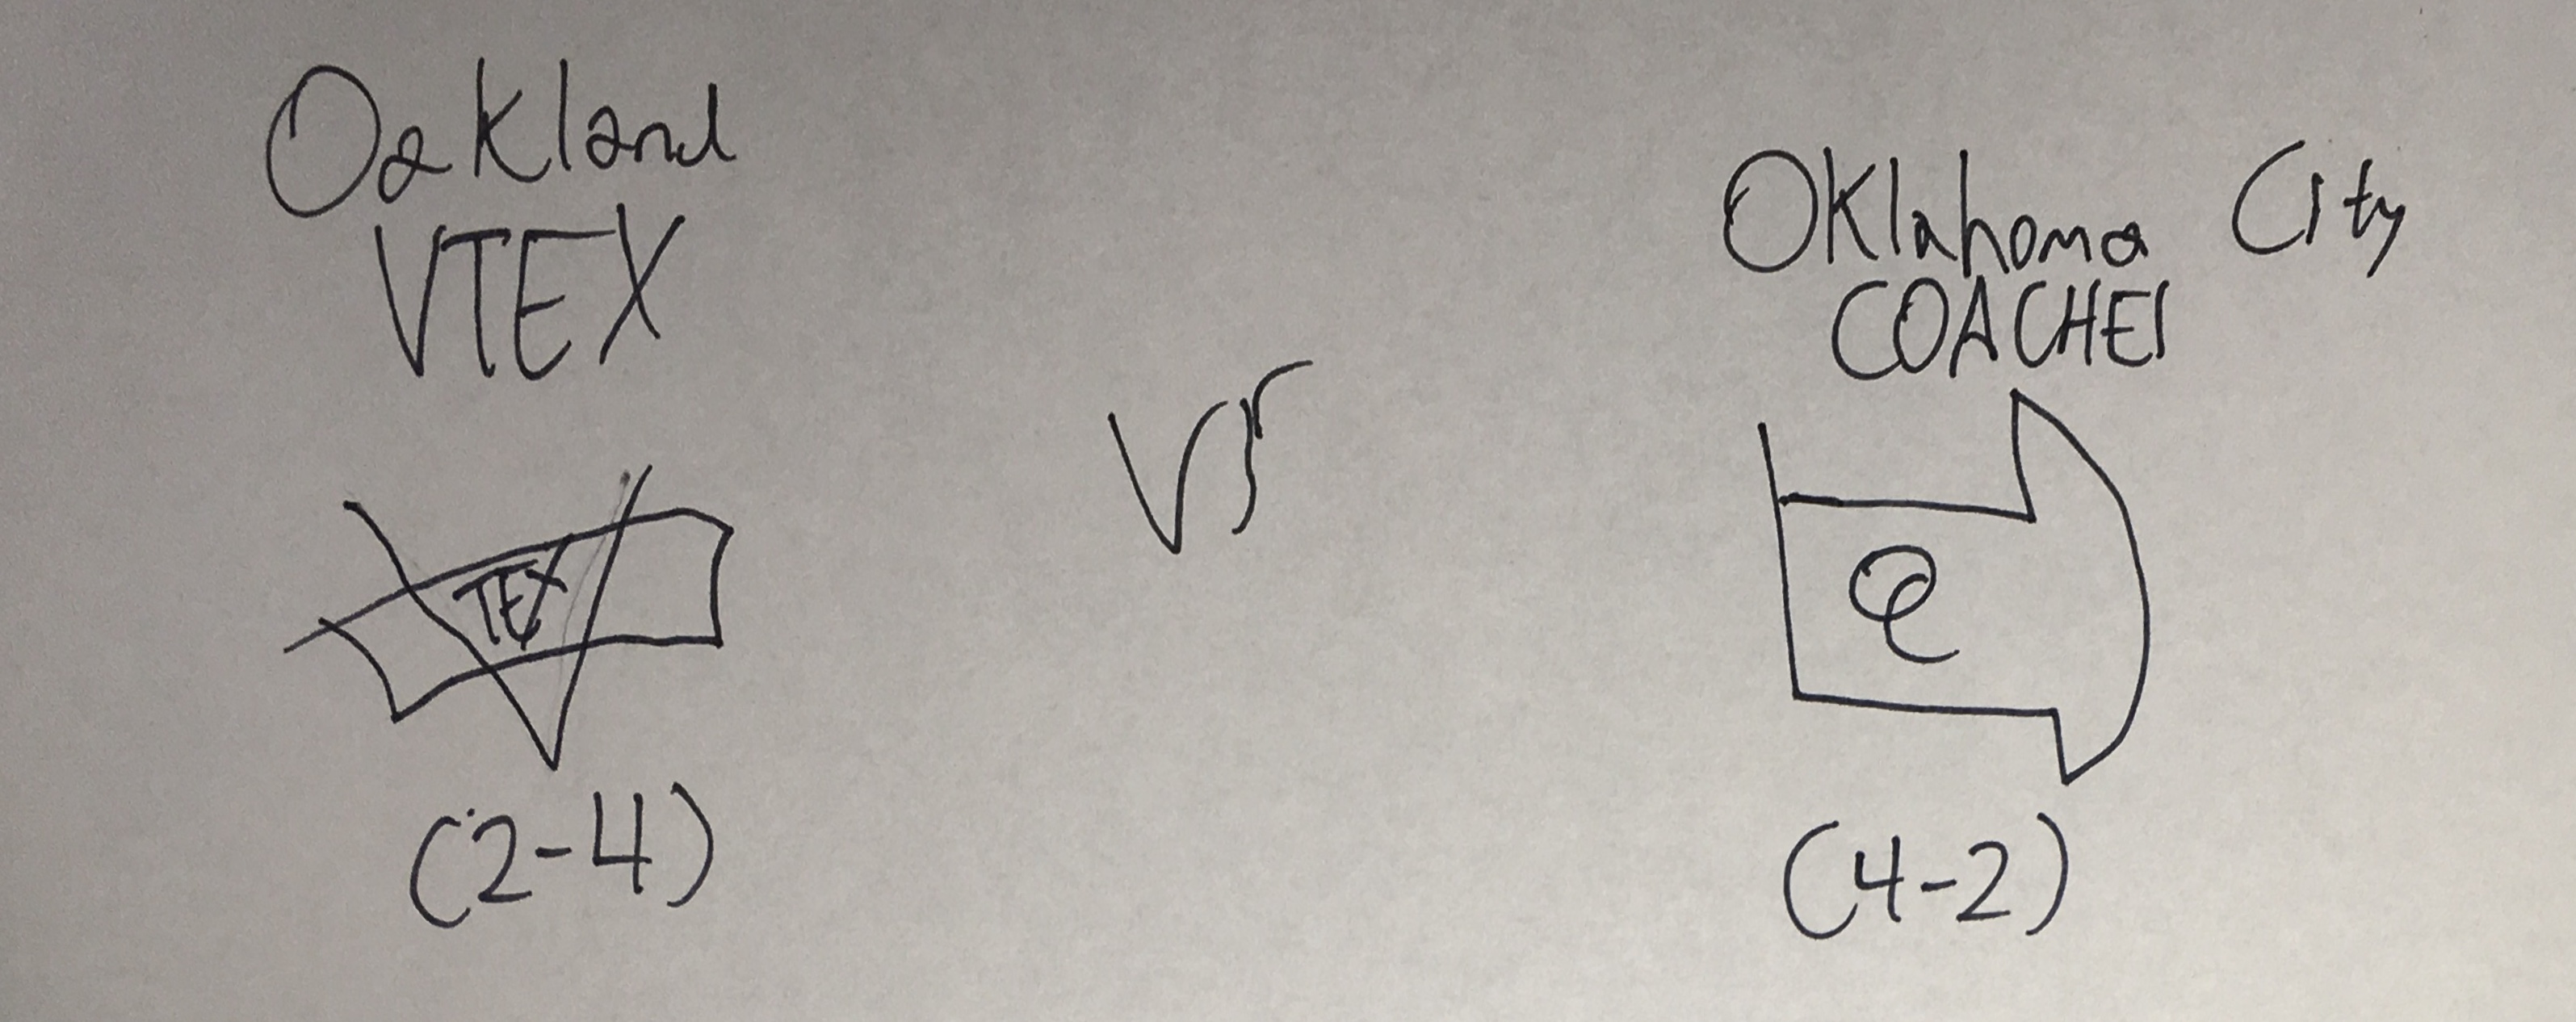 Oakland
VTEX
TEX
(2-4)
vs
Oklahoma City
COACHES
(4-2)